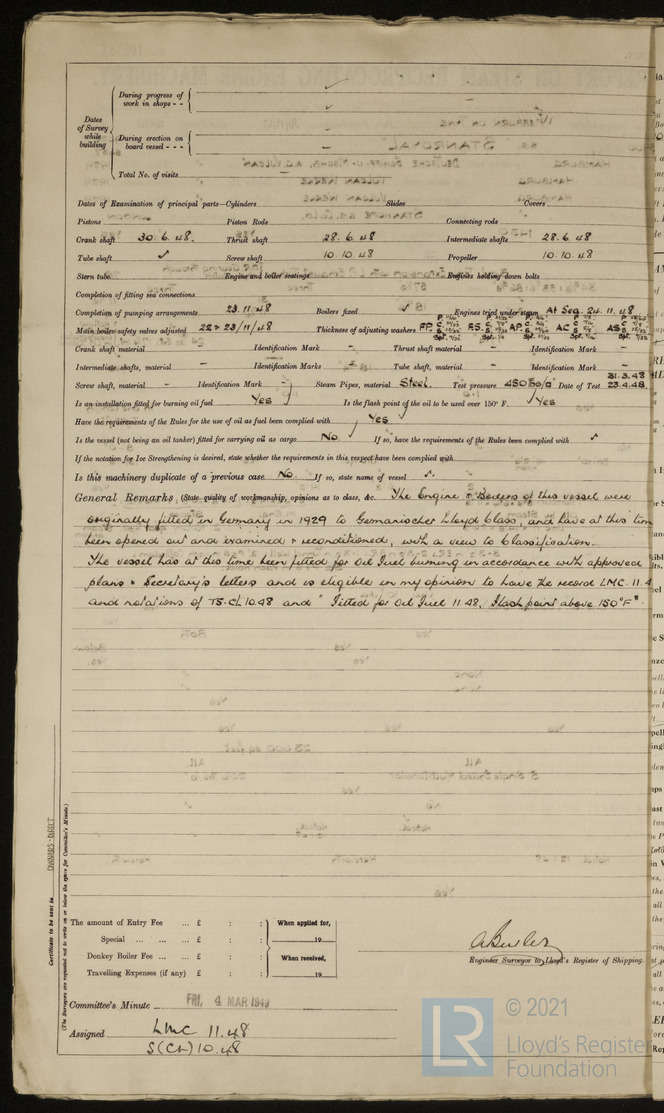 During progress of
work in shops - -
Dates
of Survey
while
building
During erection on
board vessel - - -
Total No. of visits
Dates of Examination of principal parts—Cylinders Slides Covers
Pistons Piston Rods Connecting rods
Crank shaft 30. 6. 48. Thrust shaft 28. 6. 48 Intermediate shafts 28. 6. 48
Tube shaft ✓ Screw shaft 10. 10. 48 Propeller 10. 10. 48
Stern tube Engine and boiler seatings Engines holding down bolts
Completion of fitting sea connections
Completion of pumping arrangements 23. 11. 48 Boilers fixed Engines tried under steam At Sea. 24. 11. 48
Main boiler safety valves adjusted 22 & 23/11/48 Thickness of adjusting washers
Crank shaft material – Identification Mark – Thrust shaft material – Identification Mark –
Intermediate shafts, material – Identification Marks – Tube shaft, material – Identification Mark –
Screw shaft, material – Identification Mark – Steam Pipes, material Steel. Test pressure 450 lbs/□" Date of Test 31. 3. 48 23. 4. 48.
Is an installation fitted for burning oil fuel Yes Is the flash point of the oil to be used over 150° F. Yes
Have the requirements of the Rules for the use of oil as fuel been complied with Yes
Is the vessel (not being an oil tanker) fitted for carrying oil as cargo No If so, have the requirements of the Rules been complied with ✓
If the notation for Ice Strengthening is desired, state whether the requirements in this respect have been complied with
Is this machinery duplicate of a previous case No. If so, state name of vessel
General Remarks (State quality of workmanship, opinions as to class, &c. The Engine & Boilers of this vessel were
originally fitted in Germany in 1929 to Germanischer Lloyd Class, and have at this tim
been opened out and examined & reconditioned, with a view to Classification.
The vessel has at this time been fitted for Oil Fuel burning in accordance with approved
plans & Secretary's letters and is eligible in my opinion to have the record LMC. 11. 4
and notations of TS. CL 10.48 and "Fitted for Oil Fuel 11.48, Flash point above 150°F".
Certificate to be sent to OWNERS - DIRECT
(The Surveyors are requested not to write on or below the space for Committee's Minute.)
The amount of Entry Fee ... £ : : When applied for,
Special ... ... ... £ : : 19
Donkey Boiler Fee ... £ : : When received,
Travelling Expenses (if any) £ : : 19
A Butler
Engineer Surveyor to Lloyd's Register of Shipping.
Committee's Minute FRI. 4 MAR 1949
Assigned LMC 11.48
S(CL) 10.48
LR
© 2021
Lloyd's Register
Foundation